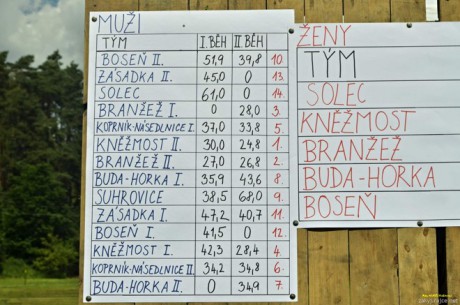 MUŽI
TÝM I.BĚH II BĚH
BOSEŇ II. 51,9 39,8 10.
ZÁSADKA II. 45,0 0 13.
SOLEC 61,0 0 14.
BRANŽEŽ I. 0 28,0 3.
KOPRNÍK-NÁSEDLNICE I. 37,0 33,8 5.
KNĚŽMOST II. 30,0 24,8 1.
BRANŽEŽ II. 27,0 26,8 2.
BUDA-HORKA I. 35,9 43,6 8.
SUHROVICE 38,5 68,0 9.
ZÁSADKA I. 47,2 40,7 11.
BOSEŇ I. 41,5 0 12.
KNĚŽMOST I. 42,3 28,4 4.
KOPRNÍK-NÁSEDLNICE II. 34,2 34,8 6.
BUDA-HORKA II 0 34,9 7.
ŽENY
TÝM
SOLEC
KNĚŽMOST
BRANŽEŽ
BUDA-HORKA
BOSEŇ